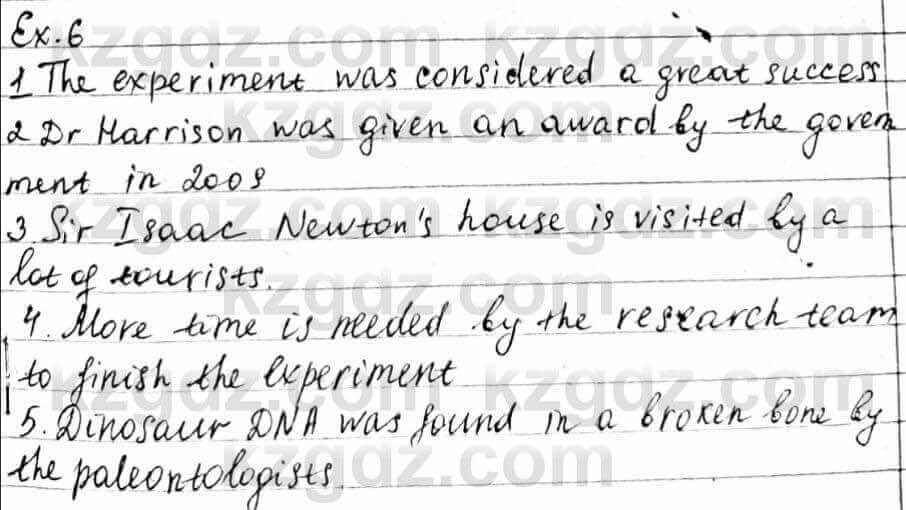 Ex. 6
1 The experiment was considered a great success
2 Dr Harrison was given an award by the govern
ment in 2009
3. Sir Isaac Newton's house is visited by a
lot of tourists.
4. More time is needed by the research team
to finish the experiment
5. Dinosaur DNA was found in a broken bone by
the paleontologists.